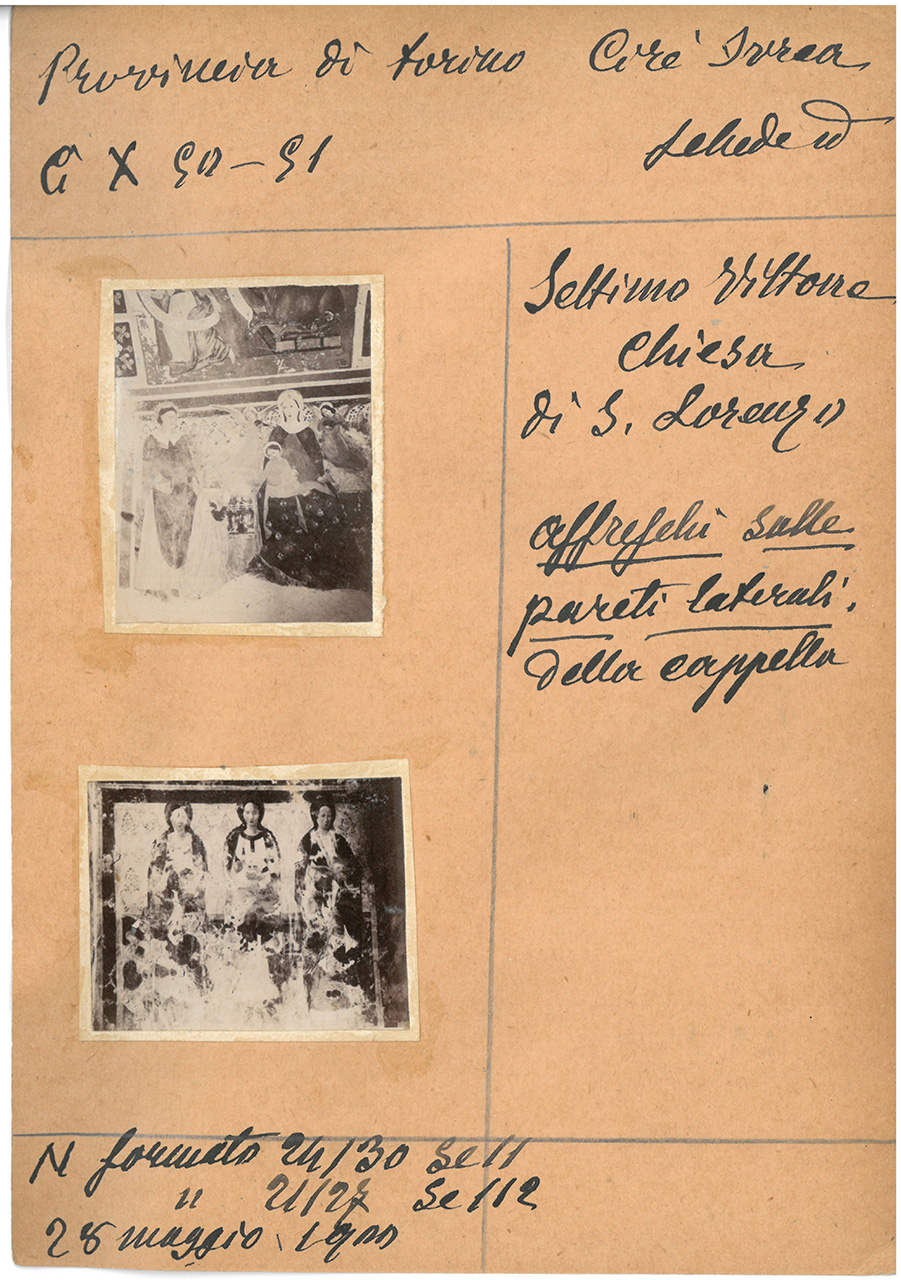 Provincia di Torino Cirè Ivrea
schede
G X 50 – 51
Settimo Vittone
Chiesa
di S. Lorenzo
affreschi sulle
pareti laterali.
della cappella
N formato 24/30 Se 11
" 21/27 Se 112
28 maggio 1900